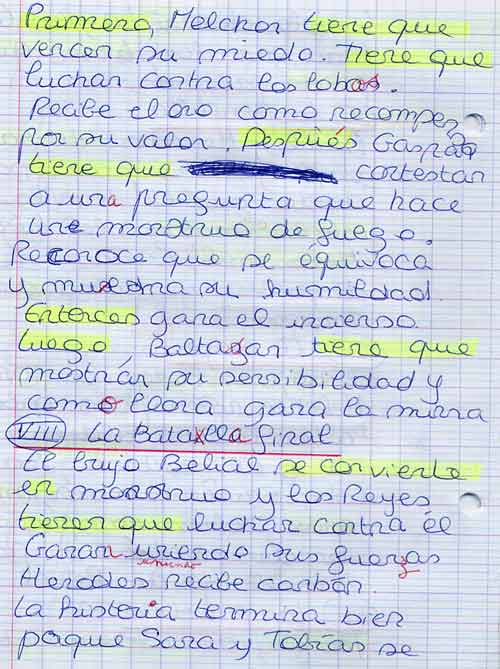 Primero, Melchor tiene que
vencer su miedo. Tiene que
luchar contra los lobos.
Recibe el oro como recompensa
por su valor. Después Gaspar
tiene que contestar
a una pregunta que hace
une monstruo de fuego.
Reconoce que se équivoca
y muestra su humildad.
Entonces gana el incienso.
Luego, Baltazar tiene que
mostrár su sensibilidad y
como llora gana la mirra
VIII La Batalla final
El brujo Belial se convierte
en monstruo y los Reyes
tienen que luchar contra él
Ganan uniendo sus fuerzas
Herodes recibe carbón.
La historia termina bien
poque Sara y Tobías se